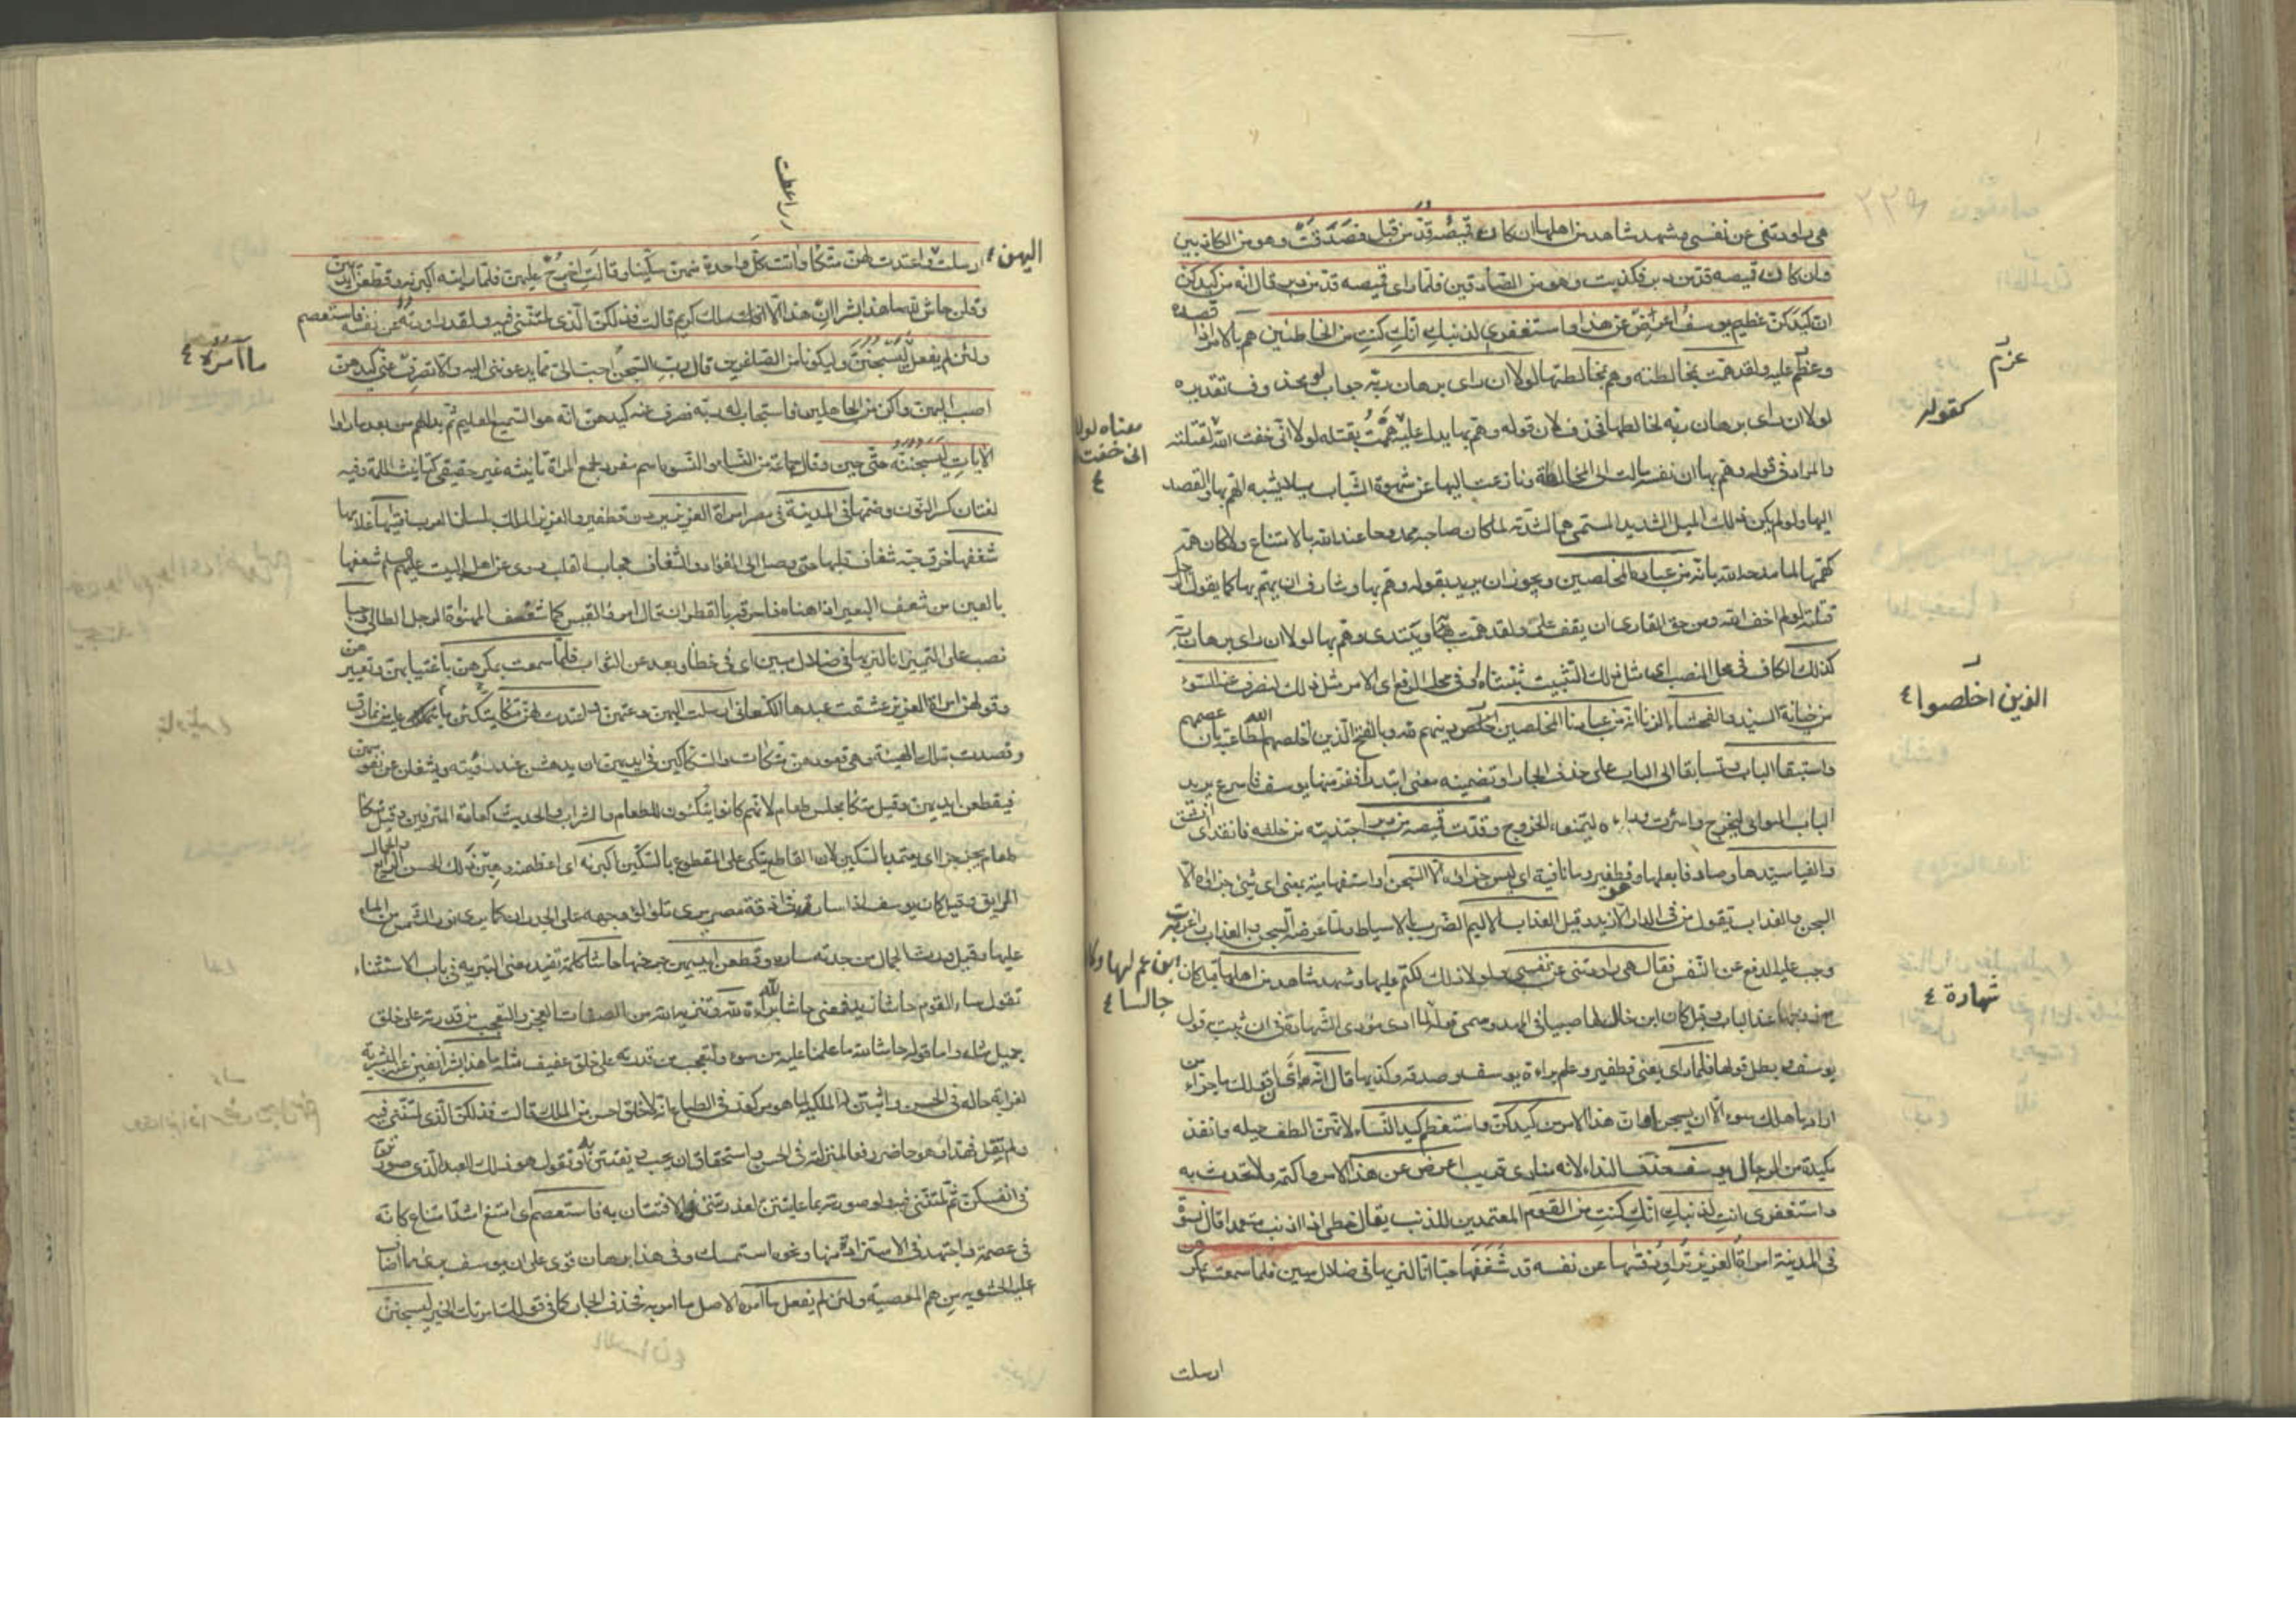 هي راودتني عن نفسي وشهد شاهد من اهلها ان كان قميصه قد من قبل فصدقت وهو من الكاذبين
وان كان قميصه قد من دبر فكذبت وهو من الصادقين فلما رأى قميصه قد من دبر قال انه من كيدكن
ان كيدكن عظيم يوسف اعرض عن هذا واستغفري لذنبك انك كنت من الخاطئين هم بالامر اذا قصده
وعزم عليه ولقد همت بمخالطته وهم بمخالطتها لولا ان راى برهان ربه جواب لو محذوف تقديره
لولا ان راى برهان ربه لخالطها فحذف لان قوله وهم بها يدل عليه هممت بقتله لولا انى خفت الله لقتلته
والمراد فى قوله وهم بها ان نفسه مالت الى المخالطة ونازعت اليها عن شهوة الشباب ميلا يشبه الهم بها والقصد
اليها ولو لم يكن ذلك الميل الشديد المسمى هما لشدته لما كان صاحبه ممدوحا عند الله بالامتناع ولو كان همه
كهمها لما مدحه الله بانه من عباده المخلصين ويجوز ان يريد بقوله وهم بها وشارف ان يهم بها كما يقول الرجل
قتلته لو لم اخف الله ومن حق القارى ان يقف على ولقد همت به ويبتدى وهم بها لولا ان راى برهان ربه
كذلك الكاف فى محل النصب اى مثل ذلك التثبيت ثبتناه او فى محل الرفع اى الامر مثل ذلك لنصرف عنه السوء
من خيانة السيد والفحشاء الزنا انه من عبادنا المخلصين اخلص دينهم لله وبالفتح الذين اخلصهم الله لطاعته بان عصمهم
واستبقا الباب وتسابقا الى الباب على حذف الجار او تضمينه معنى ابتدرا ففر منها يوسف فاسرع يريد
الباب ليخرج واسرعت وراءه لتمنعه الخروج وقدت قميصه من دبر اجتذبته من خلفه فانقد اى انشق
والفيا سيدها وصادفا بعلها وهو قطفير وما نافية اى ليس جزاؤه الا السجن او استفهامية يعنى اى شئ جزاؤه الا
السجن والعذاب تقول من فى الدار الا زيد وقيل العذاب الاليم الضرب بالاسياط ولما عرضته للسجن والعذاب واغرت به
وجب عليه الدفع عن النفس فقال هى راودتنى عن نفسى ولولا ذلك لكتم عليها وشهد شاهد من اهلها قيل كان
مع زوجها عند الباب وقيل كان ابن خال لها صبيا فى المهد وسمى قوله لما ادى مؤدى الشهادة فى ان ثبت قول
يوسف وبطل قولها فلما راى يعنى قطفير وعلم براءة يوسف وصدقه وكذبها قال انه ان قولك ما جزاء من
اراد باهلك سوء الا ان يسجن او ان هذا الامر من كيدكن واستعظم كيد النساء لانهن الطف حيلة وانفذ
مكيدة من الرجال يوسف حذف النداء لانه منادى قريب اعرض عن هذا الامر واكتمه ولا تحدث به
واستغفرى انت لذنبك انك كنت من القوم المعتمدين للذنب يقال خطى اذا اذنب متعمدا وقال نسوة
فى المدينة امراة العزيز تراود فتيها عن نفسه قد شغفها حبا انا لنريها فى ضلال مبين فلما سمعت بمكرهن
ارسلت
عزم
كقوله
معناه لولا
انى خفت
٤
الذين اخلصوا ٤
ابن عم لها وكان
جالسا ٤
شهادة ٤
واعطت
اليهن
ارسلت واعتدت لهن متكا واتت كل واحدة منهن سكينا وقالت اخرج عليهن فلما راينه اكبرنه وقطعن ايديهن
وقلن حاش لله ما هذا بشرا ان هذا الا ملك كريم قالت فذلكن الذى لمتننى فيه ولقد راودته عن نفسه فاستعصم
ولئن لم يفعل ليسجنن وليكونا من الصاغرين قال رب السجن احب الى مما يدعوننى اليه والا تصرف عنى كيدهن
اصب اليهن واكن من الجاهلين فاستجاب له ربه فصرف عنه كيدهن انه هو السميع العليم ثم بدا لهم من بعد ما راوا
الايات ليسجننه حتى حين وقال جماعة من النساء والنسوة اسم مفرد لجمع المراة تانيثه غير حقيقى كتانيث اللمة وفيه
لغتان كسر النون وضمها فى المدينة فى مصر امراة العزيز يردن قطفير والعزيز الملك بلسان العرب فتيها غلامها
شغفها خرق حبه شغاف قلبها حتى وصل الى الفؤاد والشغاف حجاب القلب روى عن اهل البيت عليهم السلم شعفها
بالعين من شعف البعير اذا هناه فاحرقه بالقطران قال امرؤ القيس كما شعف المهنوة الرجل الطالى حبا
نصب على التمييز انا لنريها فى ضلال مبين اى فى خطا وبعد عن الثواب فلما سمعت بمكرهن باغتيابهن وتعييرهن
وقولهن امراة العزيز عشقت عبدها الكنعانى ارسلت اليهن دعتهن واعتدت لهن متكا يتكئن عليه من نمارق
وقصدت بتلك الهيئة وهى قعودهن متكات والسكاكين فى ايديهن ان يدهشن عند رؤيته ويشغلن عن نفوسهن
فيقطعن ايديهن وقيل متكا مجلس طعام لانهم كانوا يتكئون للطعام والشراب والحديث كعادة المترفين وقيل متكا
طعام يحز حزا اى يعتمد بالسكين لان القاطع يتكى على المقطوع بالسكين اكبرنه اى اعظمنه وهبن ذلك الحسن الرايع والجمال
الرايق وقيل كان يوسف اذا سار فى ازقة مصر يرى تلالؤ وجهه على الجدران كما يرى نور الشمس من الماء
عليها وقيل ورث الجمال من جدته ساره وقطعن ايديهن جرحنها حاشا كلمة تفيد معنى التبرية فى باب الاستثناء
تقول ساء القوم حاشا زيد فمعنى حاشا لله براءة الله وتنزيه الله من صفات العجز والتعجب من قدرته على خلق
جميل مثله واما قوله حاشا لله ما علمنا عليه من سوء فالتعجب من قدرته على خلق عفيف مثله ما هذا بشرا نفين عنه البشرية
لغرابة حاله فى الحسن واثبتن له الملكية لما هو مركوز فى الطباع انه لا خلق احسن من الملك قالت فذلكن الذى لمتننى فيه
ولم تقل فهذا وهو حاضر رفعا لمنزلته فى الحسن واستحقاق ان يحب ويفتتن به او تقول هو ذلك العبد الذى صورتن
فى انفسكن ثم لمتننى فيه ولو صورتنه بما عاينتن لعذرتننى فى الافتتان به فاستعصم اى امتنع اشد امتناع كانه
فى عصمة واجتهد فى الاستزادة منها ونحوه استمسك وفى هذا برهان قوى على ان يوسف برى مما اضاف
عليه الحشويه من هم المعصية ولئن لم يفعل ما امره الاصل ما امر به فحذف الجار كما فى قولك امرتك الخير ليسجنن
ما آمره ٤